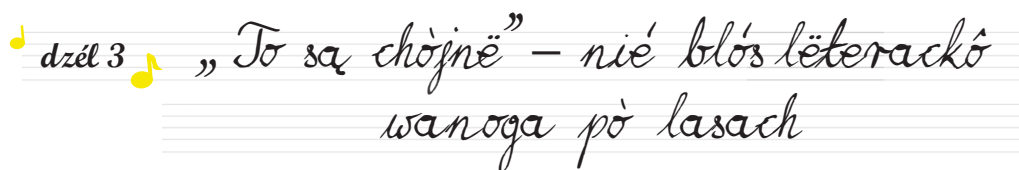 dzél 3 „To są chòjnë” – nié blós lëterackô
wanoga pò lasach